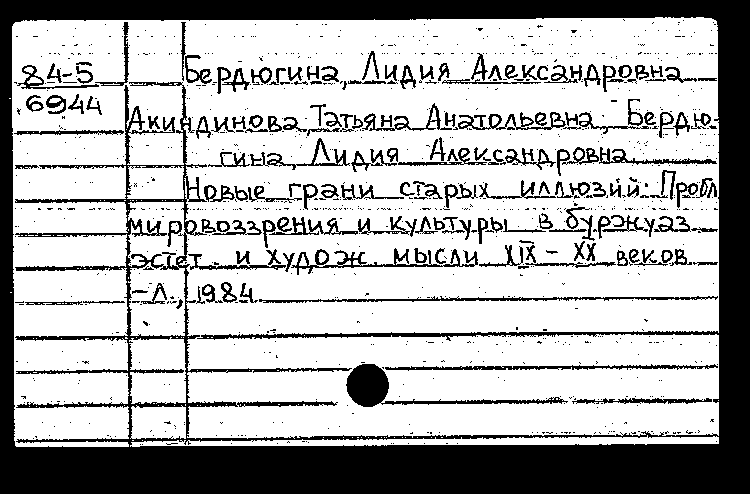 84-5
6944
Бердюгина, Лидия Александровна
Акиндинова, Татьяна Анатольевна, Бердю-
гина, Лидия Александровна.
Новые грани старых иллюзий: Пробл
мировоззрения и культуры в буржуаз.
эстет. и худож. мысли XIX – XX веков
– Л., 1984